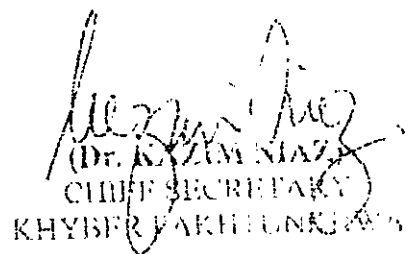 (Dr. KAZIM NIAZ)
CHIEF SECRETARY
KHYBER PAKHTUNKHWA